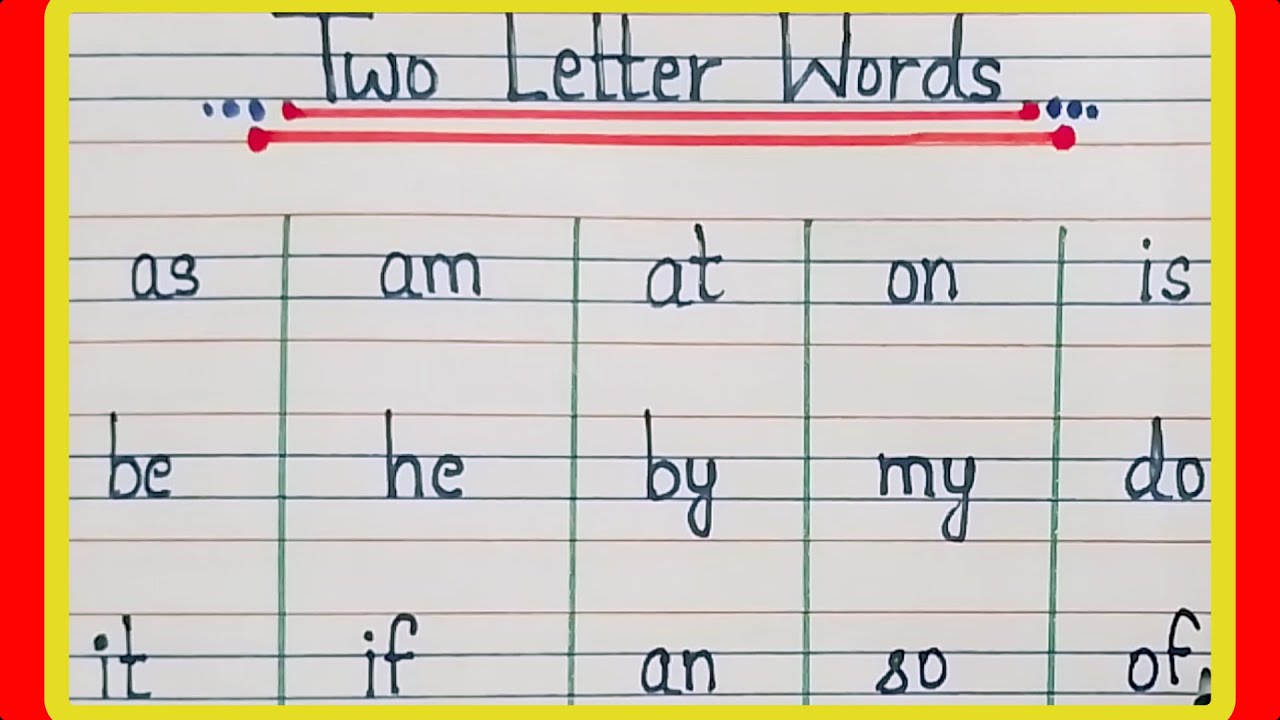 Two Letter Words
as am at on is
be he by my do
it if an so of